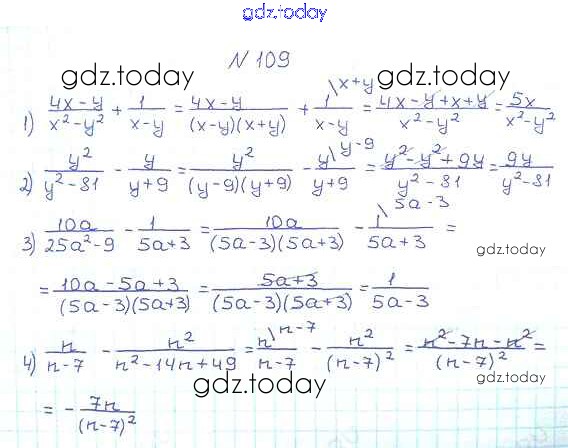 gdz.today
N 109
gdz.today gdz.today
1) (4x-y)/(x²-y²) + 1/(x-y) = (4x-y)/((x-y)(x+y)) + 1\x+y/(x-y) = (4x-y+x+y)/(x²-y²) = 5x/(x²-y²)
2) y²/(y²-81) - y/(y+9) = y²/((y-9)(y+9)) - y\y-9/(y+9) = (y²-y²+9y)/(y²-81) = 9y/(y²-81)
3) 10a/(25a²-9) - 1/(5a+3) = 10a/((5a-3)(5a+3)) - 1\5a-3/(5a+3) =
gdz.today
= (10a-5a+3)/((5a-3)(5a+3)) = (5a+3)/((5a-3)(5a+3)) = 1/(5a-3)
4) n/(n-7) - n²/(n²-14n+49) = n\n-7/(n-7) - n²/(n-7)² = (n²-7n-n²)/(n-7)² =
gdz.today gdz.today
= - 7n/(n-7)²